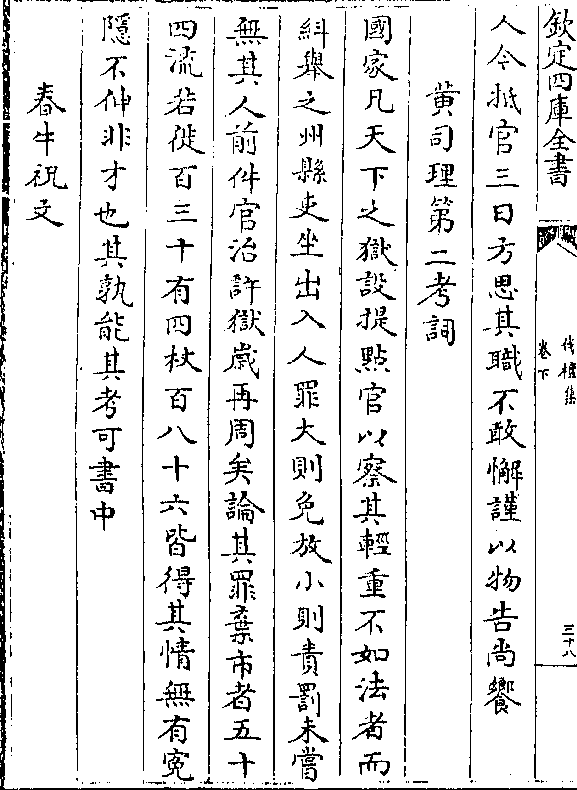 欽定四庫全書
伐檀集
卷下
三十八
人今抵官三日方思其職不敢懈謹以物告尚饗
黄司理第二考詞
國家凡天下之獄設提點官以察其輕重不如法者而
糾舉之州縣吏坐出入人罪大則免放小則責罰未嘗
無其人前件官治許獄嵗再周矣論其罪棄市者五十
四流若徙百三十有四杖百八十六皆得其情無有寃
隱不伸非才也其孰能其考可書中
春牛祝文